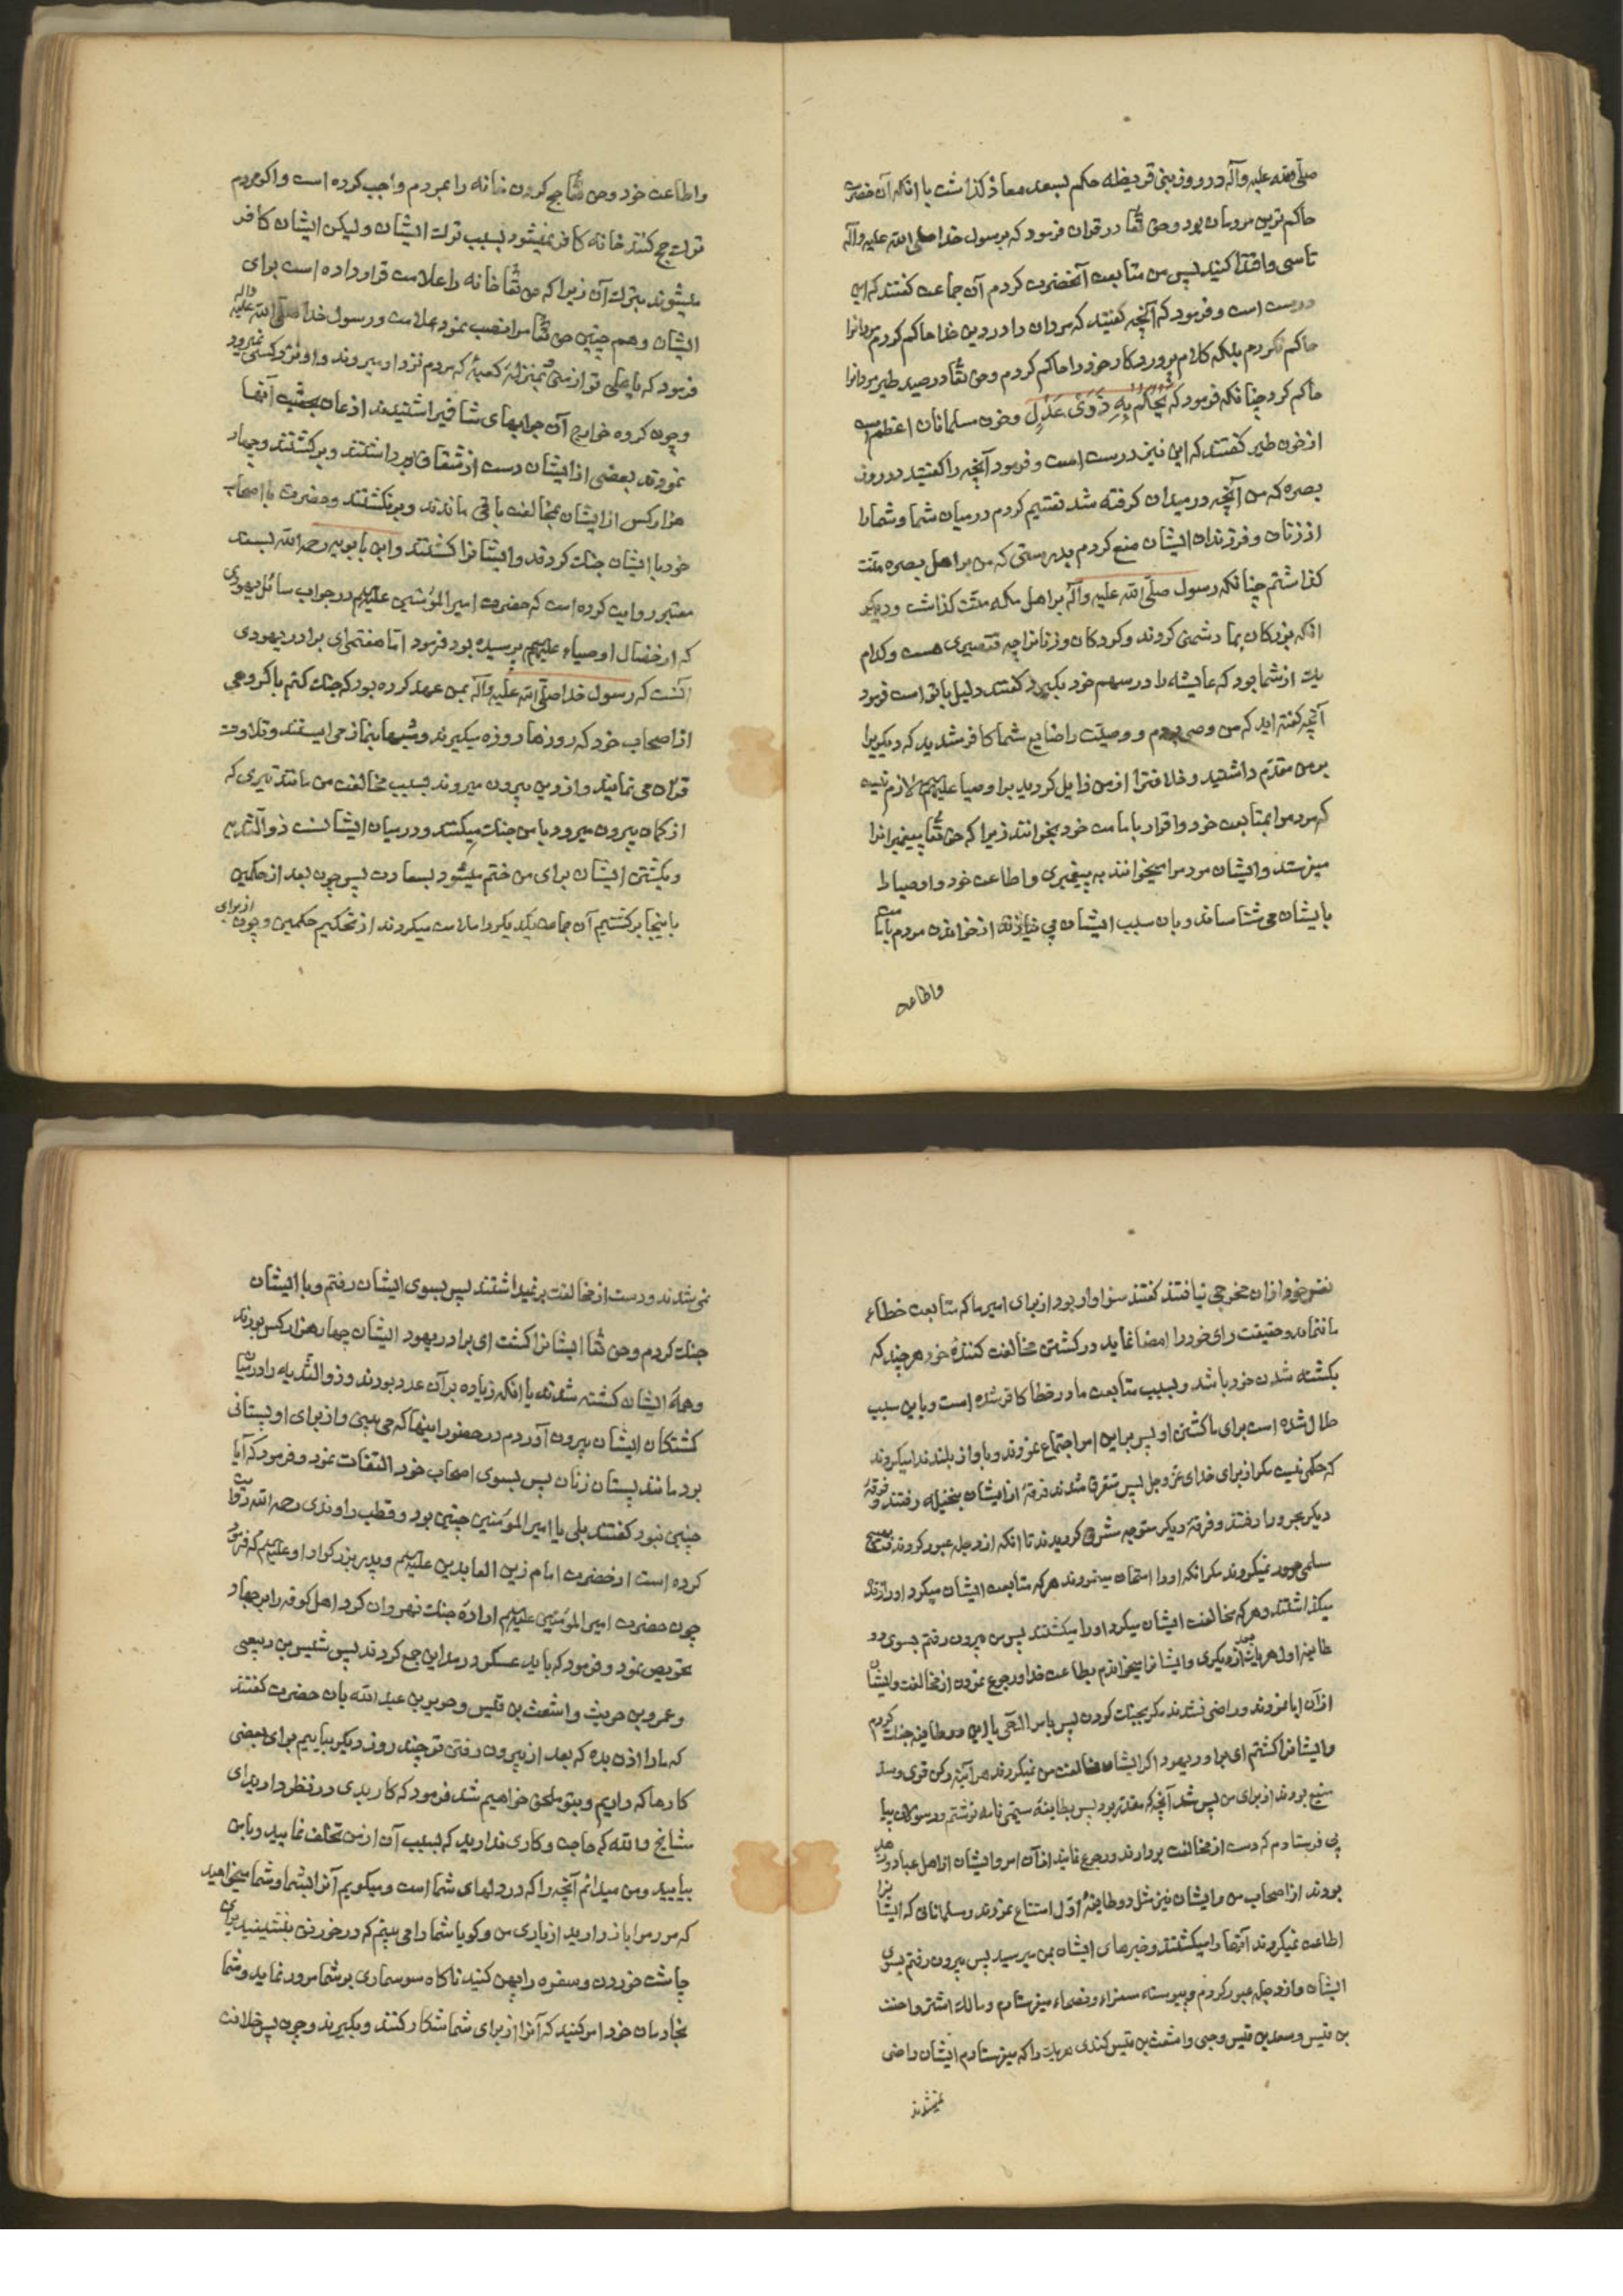 صلی الله علیه وآله در روز بنی قریظه حکم بسعد معاذ کذاشت با انکه آن حضرت
حاکم ترین مردمان بود وحق تعا در قران فرمود که برسول خدا صلی الله علیه واله
تاسی واقتدا کنید پس من متابعت آنحضرت کردم آن جماعت کفتند که این
درست است وفرمود که آنچه کفتید که مردان را در دین خدا حاکم کردم من مردانرا
حاکم نکردم بلکه کلام پروردکار خود را حاکم کردم وحق تعا در صید طیر مردانرا
حاکم کرد چنانکه فرمود که یَحْکُمُ بِهِ ذَوَیْ عَدْلٍ وخون مسلمانان اعظم است
از خون طیر کفتند که این نیز درست است وفرمود آنچه را کفتید در روز
بصره که من آنچه در میدان کرفته شد تقسیم کردم در میان شما وشما را
از زنان وفرزندان ایشان منع کردم بدرستی که من بر اهل بصره منّت
کذاشتم چنانکه رسول صلّی الله علیه وآله بر اهل مکه منّت کذاشت ودیکر
انکه بزرکان بما دشمنی کردند وکودکان وزنانرا چه تقصیری هست وکدام
یک از شما بود که عایشه را در سهم خود بکیرد کفتند دلیل با تو است فرمود
آنچه کفته اید که من وصی بودم و وصیّت را ضایع شما کافر شدید که دیکریرا
بر من مقدّم داشتید وخلافترا از من زایل کردید بر اوصیا علیهم السلام لازم نیست
که مردم را بمتابعت خود واقرار بامامت خود بخوانند زیرا که حق تعا پیغمبرانرا
میفرستد وایشان مردم را میخوانند به پیغمبری واطاعت خود واوصیا را
بایشان می شناسانند وبان سبب ایشان بی نیازند از خواندن مردم بامامت
واطاعت
واطاعت خود وحق تعا حج کردن خانه را بمردم واجب کرده است واکر مردم
ترک حج کنند خانه کافر نمیشود بسبب ترک ایشان ولیکن ایشان کافر
میشوند بترک آن زیرا که حق تعا خانه را علامت قرار داده است برای
ایشان وهم چنین حق تعا مرا نصب نمود علامت ورسول خدا صلی الله علیه واله
فرمود که یا علی تو از من بمنزلهٔ کعبهٔ که مردم نزد او میروند واو نزد کسی نمیرود
وچون کروه خوارج آن جوابهای شافیرا شنیدند اذعان بحقیت آنها
نمودند بعضی از ایشان دست از شقاق برداشتند وبرکشتند وچهار
هزار کس از ایشان بمخالفت باقی ماندند وبرنکشتند وحضرت با اصحاب
خود با ایشان جنک کردند وایشانرا کشتند وابن بابویه رحمه الله بسند
معتبر روایت کرده است که حضرت امیر المؤمنین علیه السلام در جواب سائل یهودی
که از خصال اوصیاء علیهم پرسیده بود فرمود امّا هفتم ای برادر یهودی
آنست که رسول خدا صلّی الله علیه وآله بمن عهد کرده بود که جنک کنم با کروهی
از اصحاب خود که روزها روزه میکیرند وشبها بنماز می ایستند وتلاوت
قران می نمایند واز دین بیرون میروند بسبب مخالفت من مانند تیری که
از کمان بیرون میرود با من جنک میکنند ودر میان ایشانست ذو الثّدیه
وبکشتن ایشان برای من ختم میشود بسعادت پس چون بعد از حکمین
باینجا برکشتیم آن جماعت یکدیکر را ملامت میکردند از تحکیم حکمین وچون از برای
نفس خود ازان مخرجی نیافتند کفتند سزاوار بود از برای امیر ما که متابعت خطاء
ما ننماید وحقیقت رای خود را امضا نماید در کشتن مخالفت کنندهٔ خود هر چند که
بکشته شدن خود باشد وبسبب متابعت ما در خطا کافر شده است وباین سبب
حلال شده است برای ما کشتن او پس براین امر اجتماع نمودند وباواز بلند ندا میکردند
که حکمی نیست مکر از برای خدای عزّ وجل پس متفرق شدند فرقهٔ از ایشان بنخیله رفتند وفرقهٔ
دیکر بحرورا رفتند وفرقهٔ دیکر متوجه مشرق کردیدند تا انکه از دجله عبور کردند
مسلمی مرور نمیکردند مکر انکه اورا امتحان مینمودند هر که متابعت ایشان میکرد اورا زنده
میکذاشتند وهر که مخالفت ایشان میکرد اورا میکشتند پس من بیرون رفتم بسوی دو
طایفه اول هر یک بعد از دیکری وایشانرا میخواندم بطاعت خدا ورجوع نمودن از مخالفت وایشان
ازآن ابا نمودند وراضی نشدند مکر بجنک کردن پس بامر الهی با این دو طایفه جنک کردم
وایشانرا کشتم ای برادر یهود اکر ایشان مخالفت من نمیکردند هر آینه رکن قوی وسد
منیع بودند از برای من پس شد آنچه که مقدّر بود پس بطایفهٔ سیّمی نامه نوشتم ورسولان پیا
پی فرستادم که دست از مخالفت بردارند ورجوع نمایند ازان امر وایشان از اهل عباد وزهد
بودند از اصحاب من وایشان نیز مثل دو طایفهٔ اوّل امتناع نمودند ومسلمانانی که ایشانرا
اطاعت نمیکردند آنها را میکشتند وخبرهای ایشان بمن میرسید پس بیرون رفتم بسوی
ایشان واز دجله عبور کردم وپیوسته سفراء ونصحاء میفرستادم ومالک اشتر واحنف
بن قیس وسعد بن قیس وجبی واشعث بن قیس کندی هر یک را که میفرستادم ایشان راضی
نمیشدند
نمی شدند ودست از مخالفت برنمیداشتند پس بسوی ایشان رفتم وبا ایشان
جنک کردم وحق تعا ایشانرا کشت ای برادر یهود ایشان چهار هزار کس بودند
وهمهٔ ایشان کشته شدند با انکه زیاده برآن عدد بودند وذو الثّدیه را درمیان
کشتکان ایشان بیرون آوردم در حضور اینها که می بینی واز برای او پستانی
بود مانند پستان زنان پس بسوی اصحاب خود التفات نمود وفرمود که آیا
چنین نبود کفتند بلی یا امیر المؤمنین چنین بود وقطب راوندی رحمه الله روایت
کرده است از حضرت امام زین العابدین علیهم وپدر بزرکوار او علیهم که فرمود
چون حضرت امیر المؤمنین علیه السلام ارادهٔ جنک نهروان کرد اهل کوفه را بر جهاد
تحریص نمود وفرمود که باید عسکر در مداین جمع کردند پس شبث بن ربعی
وعمرو بن حریث واشعث بن قیس وجریر بن عبد الله بان حضرت کفتند
که ما را اذن بده که بعد از بیرون رفتن تو چند روز دیکر بیاییم برای بعضی
کارها که داریم وبتو ملحق خواهیم شد فرمود که کار بدی در نظر دارید ای
مشایخ والله که حاجت وکاری ندارید که بسبب آن از من تخلّف نمایید وبا من
بیایید ومن میدانم آنچه را که در دلهای شما است ومیکویم آنرا بشما وشما میخواهید
که مردم را باز دارید از یاری من وکویا شما را می بینم که در خورنق بنشینید برای
چاشت خوردن وسفره را پهن کنید ناکاه سوسماری بر شما مرور نماید وشما
بخادمان خود امر کنید که آنرا از برای شما شکار کنند وبکیرند وچون پس خلافت